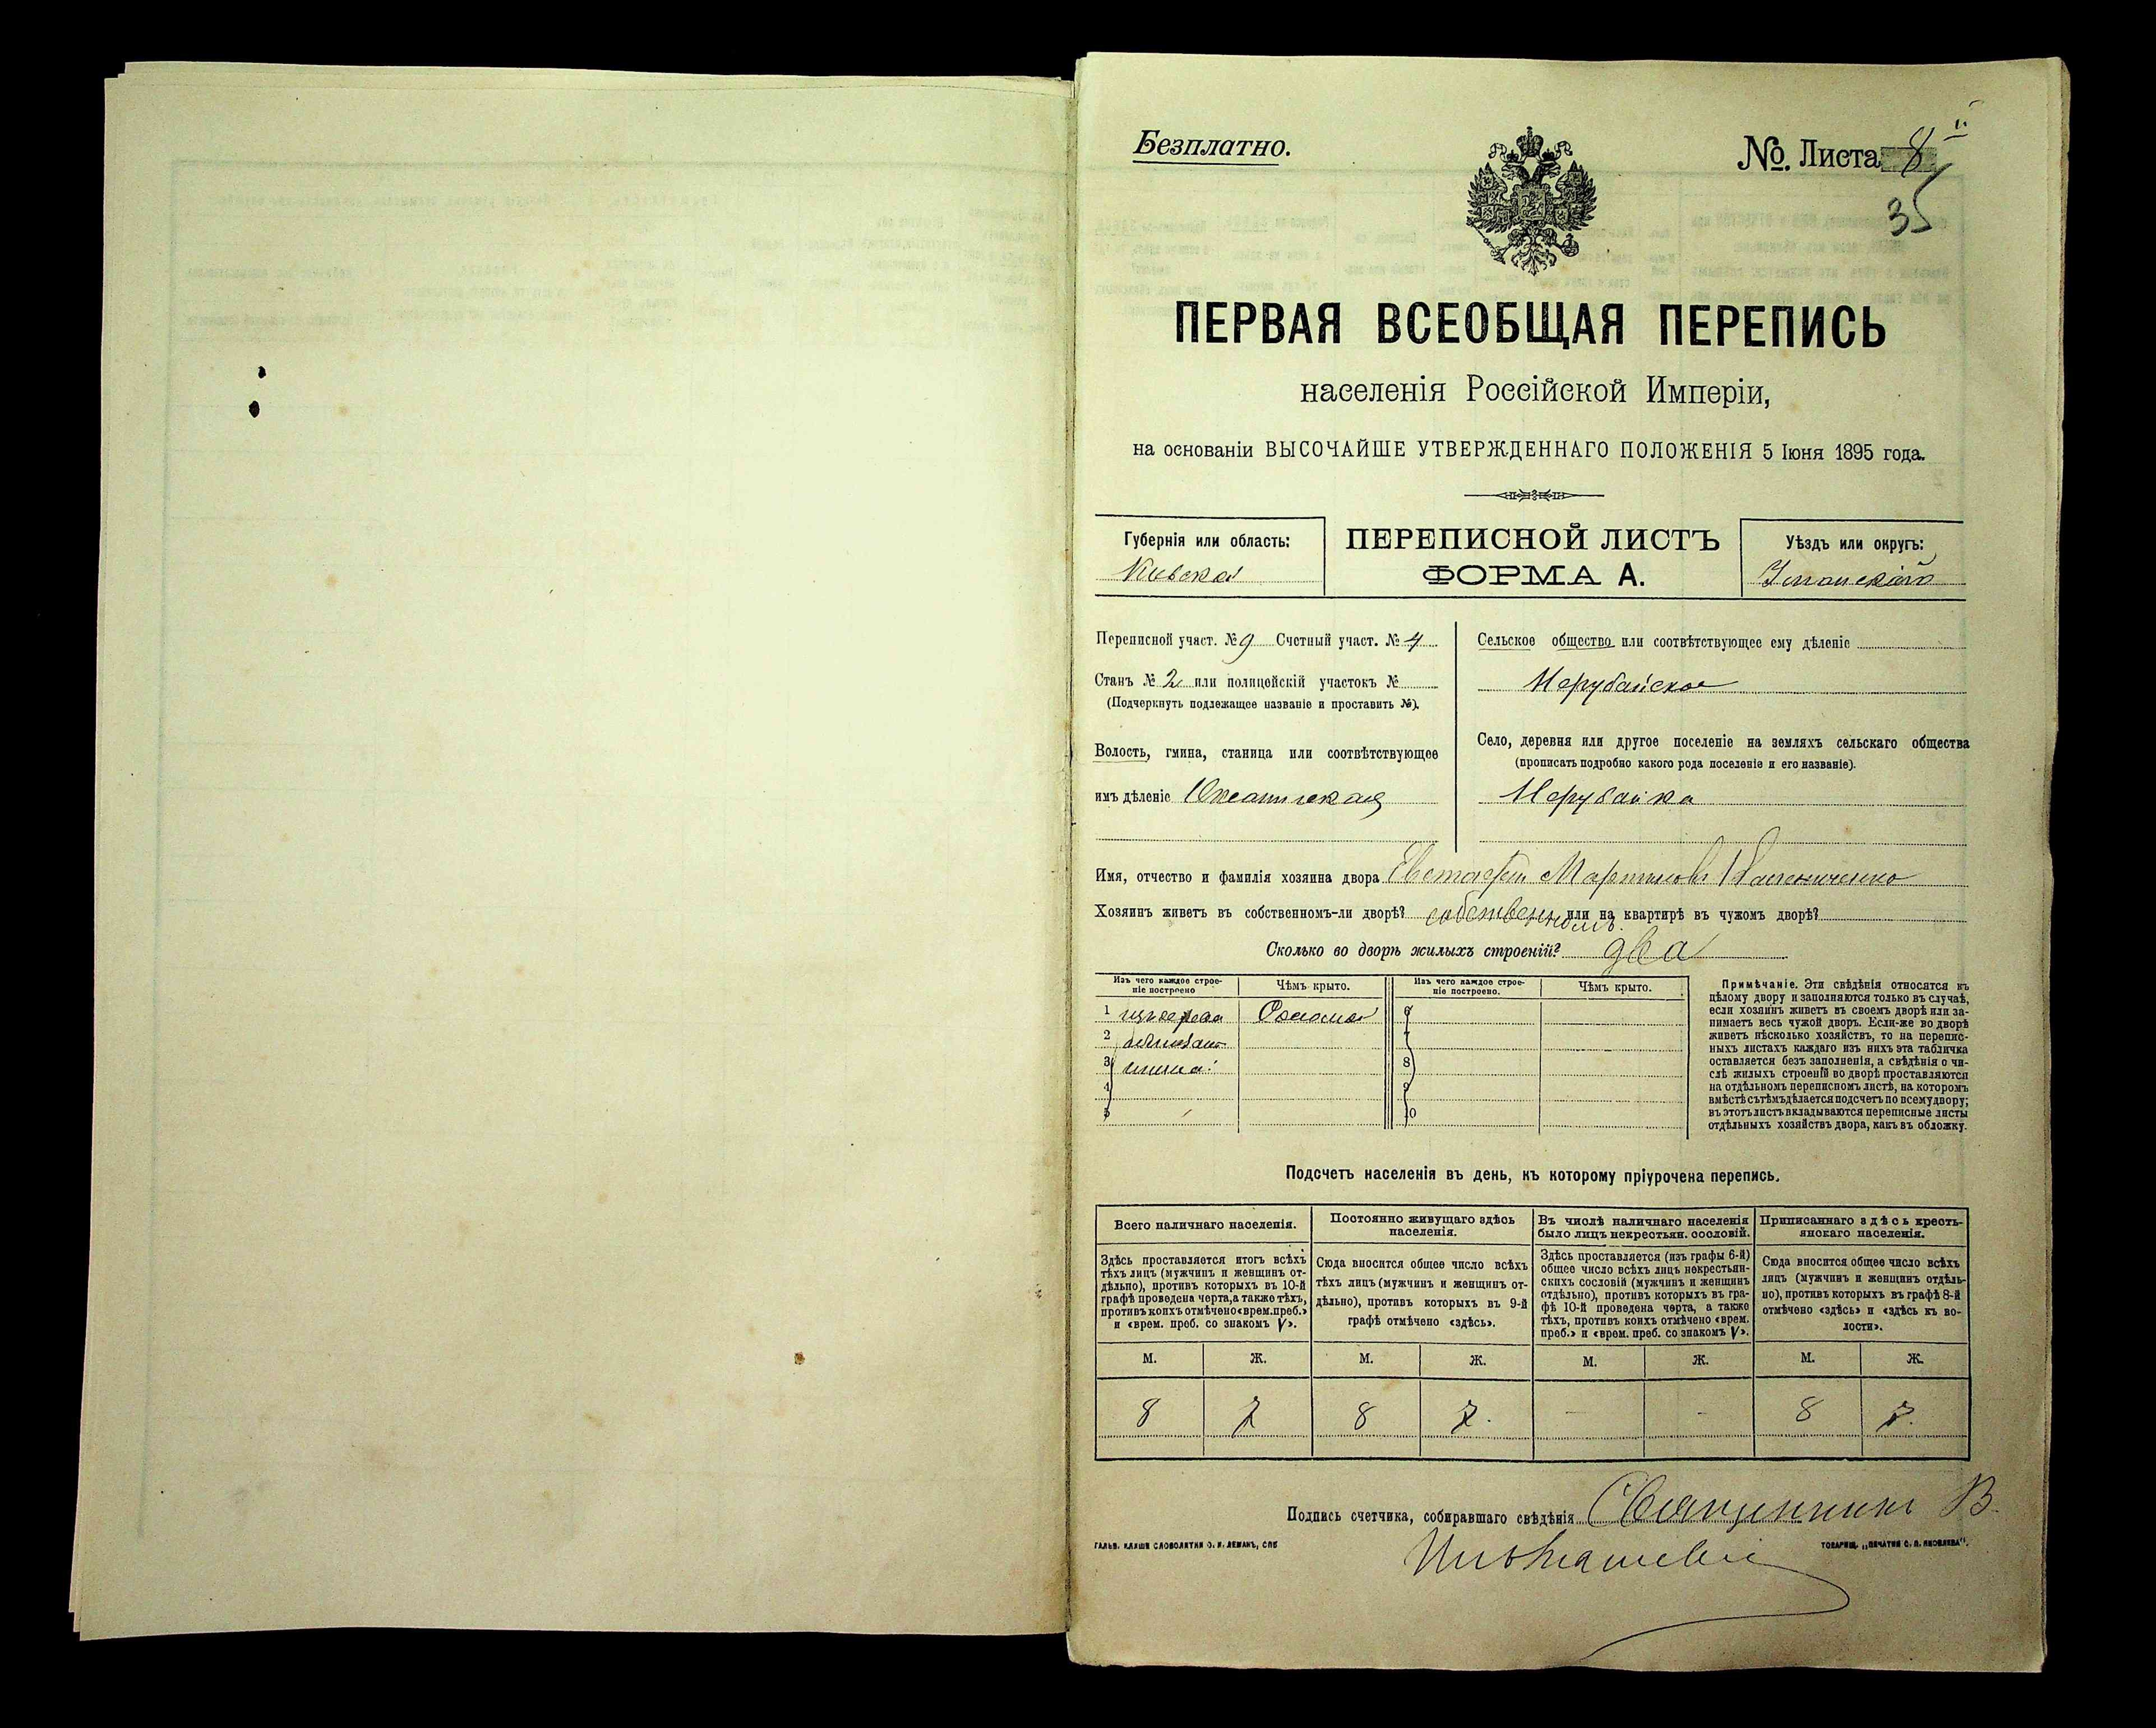 Безплатно.
№. Листа 8
35
ПЕРВАЯ ВСЕОБЩАЯ ПЕРЕПИСЬ
населенія Россійской Имперіи,
на основаніи ВЫСОЧАЙШЕ УТВЕРЖДЕННАГО ПОЛОЖЕНІЯ 5 Іюня 1895 года.
Губернія или область:
Киевская
ПЕРЕПИСНОЙ ЛИСТЪ
ФОРМА А.
Уѣздъ или округъ:
Уманскій
Переписной участ. № 9 Счетный участ. № 4
Станъ № 2 или полицейскій участокъ №
(Подчеркнуть подлежащее названіе и проставить №).
Волость, гмина, станица или соотвѣтствующее
имъ дѣленіе
Сельское общество или соотвѣтствующее ему дѣленіе
Нерубайское
Село, деревня или другое поселеніе на земляхъ сельскаго общества
(прописать подробно какого рода поселеніе и его названіе).
Нерубайка
Имя, отчество и фамилія хозяина двора Евстафій Мартиновъ
Хозяинъ живетъ въ собственномъ-ли дворѣ? собственномъ или на квартирѣ въ чужомъ дворѣ?
Сколько во дворѣ жилыхъ строеній? два
Изъ чего каждое строе-
ніе построено
Чѣмъ крыто.
Изъ чего каждое строе-
ніе построено.
Чѣмъ крыто.
1 изъ дерева Солома 6
2 7
3 глина 8
4 9
5 10
Примѣчаніе. Эти свѣдѣнія относятся къ
цѣлому двору и заполняются только въ случаѣ,
если хозяинъ живетъ въ своемъ дворѣ или за-
нимаетъ весь чужой дворъ. Если-же во дворѣ
живетъ нѣсколько хозяйствъ, то на перепис-
ныхъ листахъ каждаго изъ нихъ эта табличка
оставляется безъ заполненія, а свѣдѣнія о чи-
слѣ жилыхъ строеній во дворѣ проставляются
на отдѣльномъ переписномъ листѣ, на которомъ
вмѣстѣ съ тѣмъ дѣлается подсчетъ по всему двору;
въ этотъ листъ вкладываются переписные листы
отдѣльныхъ хозяйствъ двора, какъ въ обложку.
Подсчетъ населенія въ день, къ которому пріурочена перепись.
Всего наличнаго населенія.
Постоянно живущаго здѣсь
населенія.
Въ числѣ наличнаго населенія
было лицъ некрестьян. сословій.
Приписаннаго здѣсь кресть-
янскаго населенія.
Здѣсь проставляется итогъ всѣхъ
тѣхъ лицъ (мужчинъ и женщинъ от-
дѣльно), противъ которыхъ въ 10-й
графѣ проведена черта, а также тѣхъ,
противъ коихъ отмѣчено «врем. преб.»
и «врем. преб. со знакомъ V».
Сюда вносится общее число всѣхъ
тѣхъ лицъ (мужчинъ и женщинъ от-
дѣльно), противъ которыхъ въ 9-й
графѣ отмѣчено «здѣсь».
Здѣсь проставляется (изъ графы 6-й)
общее число всѣхъ лицъ некрестьян-
скихъ сословій (мужчинъ и женщинъ
отдѣльно), противъ которыхъ въ гра-
фѣ 10-й проведена черта, а также
тѣхъ, противъ коихъ отмѣчено «врем.
преб.» и «врем. преб. со знакомъ V».
Сюда вносится общее число всѣхъ
лицъ (мужчинъ и женщинъ отдѣль-
но), противъ которыхъ въ графѣ 8-й
отмѣчено «здѣсь» и «здѣсь въ во-
лости».
М. Ж. М. Ж. М. Ж. М. Ж.
8 7 8 7. - - 8 7.
Подпись счетчика, собиравшаго свѣдѣнія Священникъ В.
ГАЛЬВ. КЛИШЕ СЛОВОЛИТНИ О. И. ЛЕМАНЪ, СПБ
ТОВАРИЩ. „ПЕЧАТНЯ С. П. ЯКОВЛЕВА".